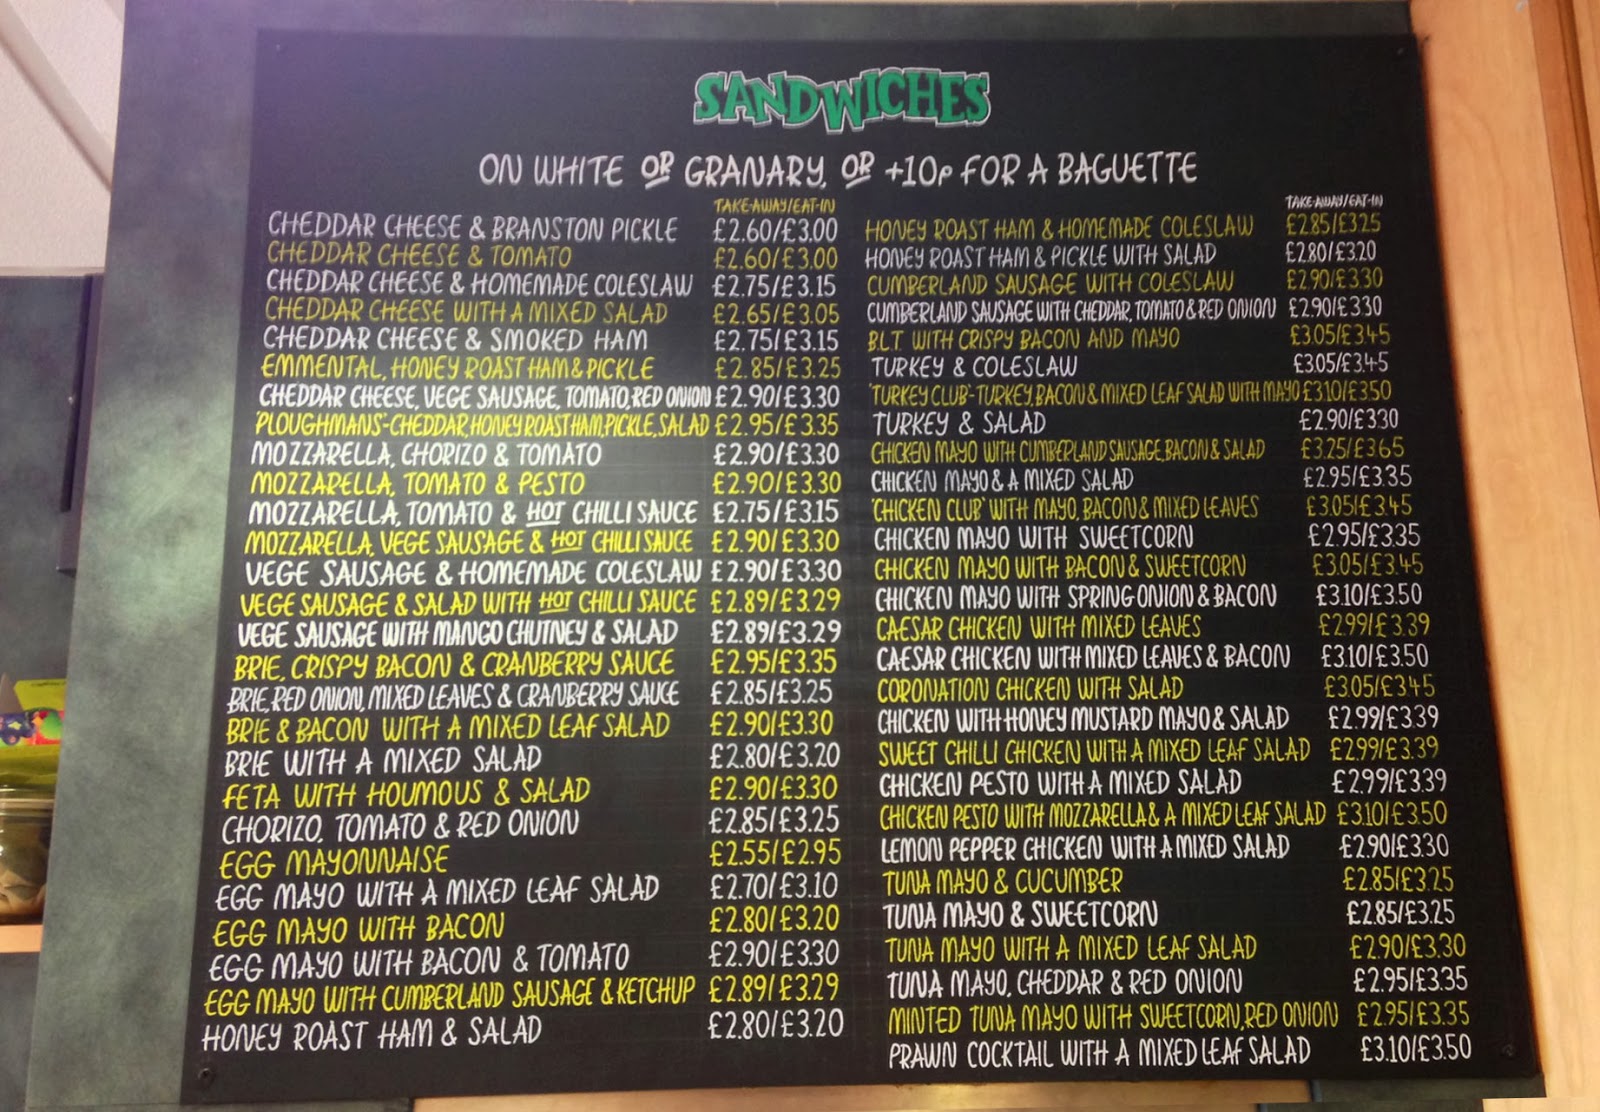 SANDWICHES
ON WHITE OR GRANARY, OR +10p FOR A BAGUETTE
TAKE-AWAY/EAT-IN
CHEDDAR CHEESE & BRANSTON PICKLE £2.60/£3.00
CHEDDAR CHEESE & TOMATO £2.60/£3.00
CHEDDAR CHEESE & HOMEMADE COLESLAW £2.75/£3.15
CHEDDAR CHEESE WITH A MIXED SALAD £2.65/£3.05
CHEDDAR CHEESE & SMOKED HAM £2.75/£3.15
EMMENTAL, HONEY ROAST HAM & PICKLE £2.85/£3.25
CHEDDAR CHEESE, VEGE SAUSAGE, TOMATO, RED ONION £2.90/£3.30
'PLOUGHMANS'-CHEDDAR, HONEY ROAST HAM, PICKLE, SALAD £2.95/£3.35
MOZZARELLA, CHORIZO & TOMATO £2.90/£3.30
MOZZARELLA, TOMATO & PESTO £2.90/£3.30
MOZZARELLA, TOMATO & HOT CHILLI SAUCE £2.75/£3.15
MOZZARELLA, VEGE SAUSAGE & HOT CHILLI SAUCE £2.90/£3.30
VEGE SAUSAGE & HOMEMADE COLESLAW £2.90/£3.30
VEGE SAUSAGE & SALAD WITH HOT CHILLI SAUCE £2.89/£3.29
VEGE SAUSAGE WITH MANGO CHUTNEY & SALAD £2.89/£3.29
BRIE, CRISPY BACON & CRANBERRY SAUCE £2.95/£3.35
BRIE, RED ONION, MIXED LEAVES & CRANBERRY SAUCE £2.85/£3.25
BRIE & BACON WITH A MIXED LEAF SALAD £2.90/£3.30
BRIE WITH A MIXED SALAD £2.80/£3.20
FETA WITH HOUMOUS & SALAD £2.90/£3.30
CHORIZO, TOMATO & RED ONION £2.85/£3.25
EGG MAYONNAISE £2.55/£2.95
EGG MAYO WITH A MIXED LEAF SALAD £2.70/£3.10
EGG MAYO WITH BACON £2.80/£3.20
EGG MAYO WITH BACON & TOMATO £2.90/£3.30
EGG MAYO WITH CUMBERLAND SAUSAGE & KETCHUP £2.89/£3.29
HONEY ROAST HAM & SALAD £2.80/£3.20
TAKE-AWAY/EAT-IN
HONEY ROAST HAM & HOMEMADE COLESLAW £2.85/£3.25
HONEY ROAST HAM & PICKLE WITH SALAD £2.80/£3.20
CUMBERLAND SAUSAGE WITH COLESLAW £2.90/£3.30
CUMBERLAND SAUSAGE WITH CHEDDAR, TOMATO & RED ONION £2.90/£3.30
B.L.T WITH CRISPY BACON AND MAYO £3.05/£3.45
TURKEY & COLESLAW £3.05/£3.45
'TURKEY CLUB'-TURKEY, BACON & MIXED LEAF SALAD WITH MAYO £3.10/£3.50
TURKEY & SALAD £2.90/£3.30
CHICKEN MAYO WITH CUMBERLAND SAUSAGE, BACON & SALAD £3.25/£3.65
CHICKEN MAYO & A MIXED SALAD £2.95/£3.35
'CHICKEN CLUB' WITH MAYO, BACON & MIXED LEAVES £3.05/£3.45
CHICKEN MAYO WITH SWEETCORN £2.95/£3.35
CHICKEN MAYO WITH BACON & SWEETCORN £3.05/£3.45
CHICKEN MAYO WITH SPRING ONION & BACON £3.10/£3.50
CAESAR CHICKEN WITH MIXED LEAVES £2.99/£3.39
CAESAR CHICKEN WITH MIXED LEAVES & BACON £3.10/£3.50
CORONATION CHICKEN WITH SALAD £3.05/£3.45
CHICKEN WITH HONEY MUSTARD MAYO & SALAD £2.99/£3.39
SWEET CHILLI CHICKEN WITH A MIXED LEAF SALAD £2.99/£3.39
CHICKEN PESTO WITH A MIXED SALAD £2.99/£3.39
CHICKEN PESTO WITH MOZZARELLA & A MIXED LEAF SALAD £3.10/£3.50
LEMON PEPPER CHICKEN WITH A MIXED SALAD £2.90/£3.30
TUNA MAYO & CUCUMBER £2.85/£3.25
TUNA MAYO & SWEETCORN £2.85/£3.25
TUNA MAYO WITH A MIXED LEAF SALAD £2.90/£3.30
TUNA MAYO, CHEDDAR & RED ONION £2.95/£3.35
MINTED TUNA MAYO WITH SWEETCORN, RED ONION £2.95/£3.35
PRAWN COCKTAIL WITH A MIXED LEAF SALAD £3.10/£3.50